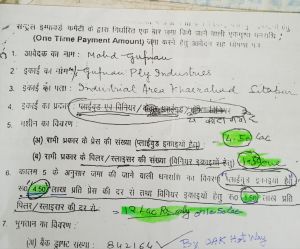 सेन्ट्रल इम्पावर्ड कमेटी के द्वारा निर्धारित एक बार जमा किये जाने वाली एकमुश्त धनराशि
(One Time Payment Amount) जमा करने हेतु आवेदन सह घोषणा पत्र
1. आवेदक का नाम :- Mohd Gufran
2. इकाई का नाम :- Gufran Ply Industries
3. इकाई का पता : Industrial Area Khairabad Sitapur
4. इकाई का प्रकार
5. मशीन का विवरण
(अ) सभी प्रकार के प्रेस की संख्या (प्लाईवुड इकाईयों हेतु) 4.50 Lac
(ब) सभी प्रकार के पिलर/स्लाइसर की संख्या (विनियर इकाइयों हेतु) 1.50
6. कालम 5 के अनुसार जमा की जाने वाली धनराशि का विवरण (प्लाईवुड इकाइयों हेतु
रू0 4.50 लाख प्रति प्रेस की दर से तथा विनियर इकाइयों हेतु रू0 1.50 लाख प्रति
पिलर/स्लाइसर की दर से) 12 Lac
7. भुगतान का विवरण :
(अ) बैंक ड्राफ्ट संख्या 842164 By